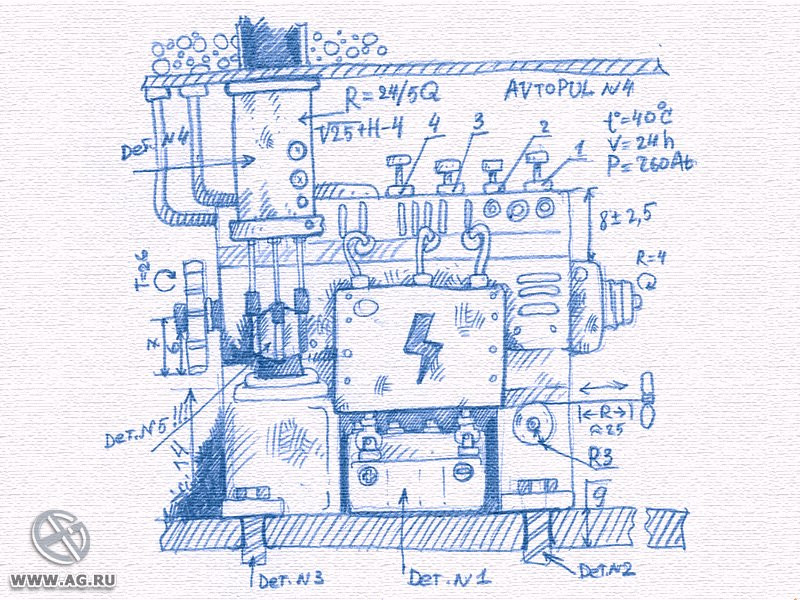 AVTOPUL N4
R=24/5Q
√25+H-4
t=40°C
V=24h
P=260At
4
3
2
1
Det. N4
8±2,5
T=26
R=4
7
6
Det. N5!!!
14
|←R→|
≈25
R3
9
Det. N3
Det. N1
Det. N2
WWW.AG.RU